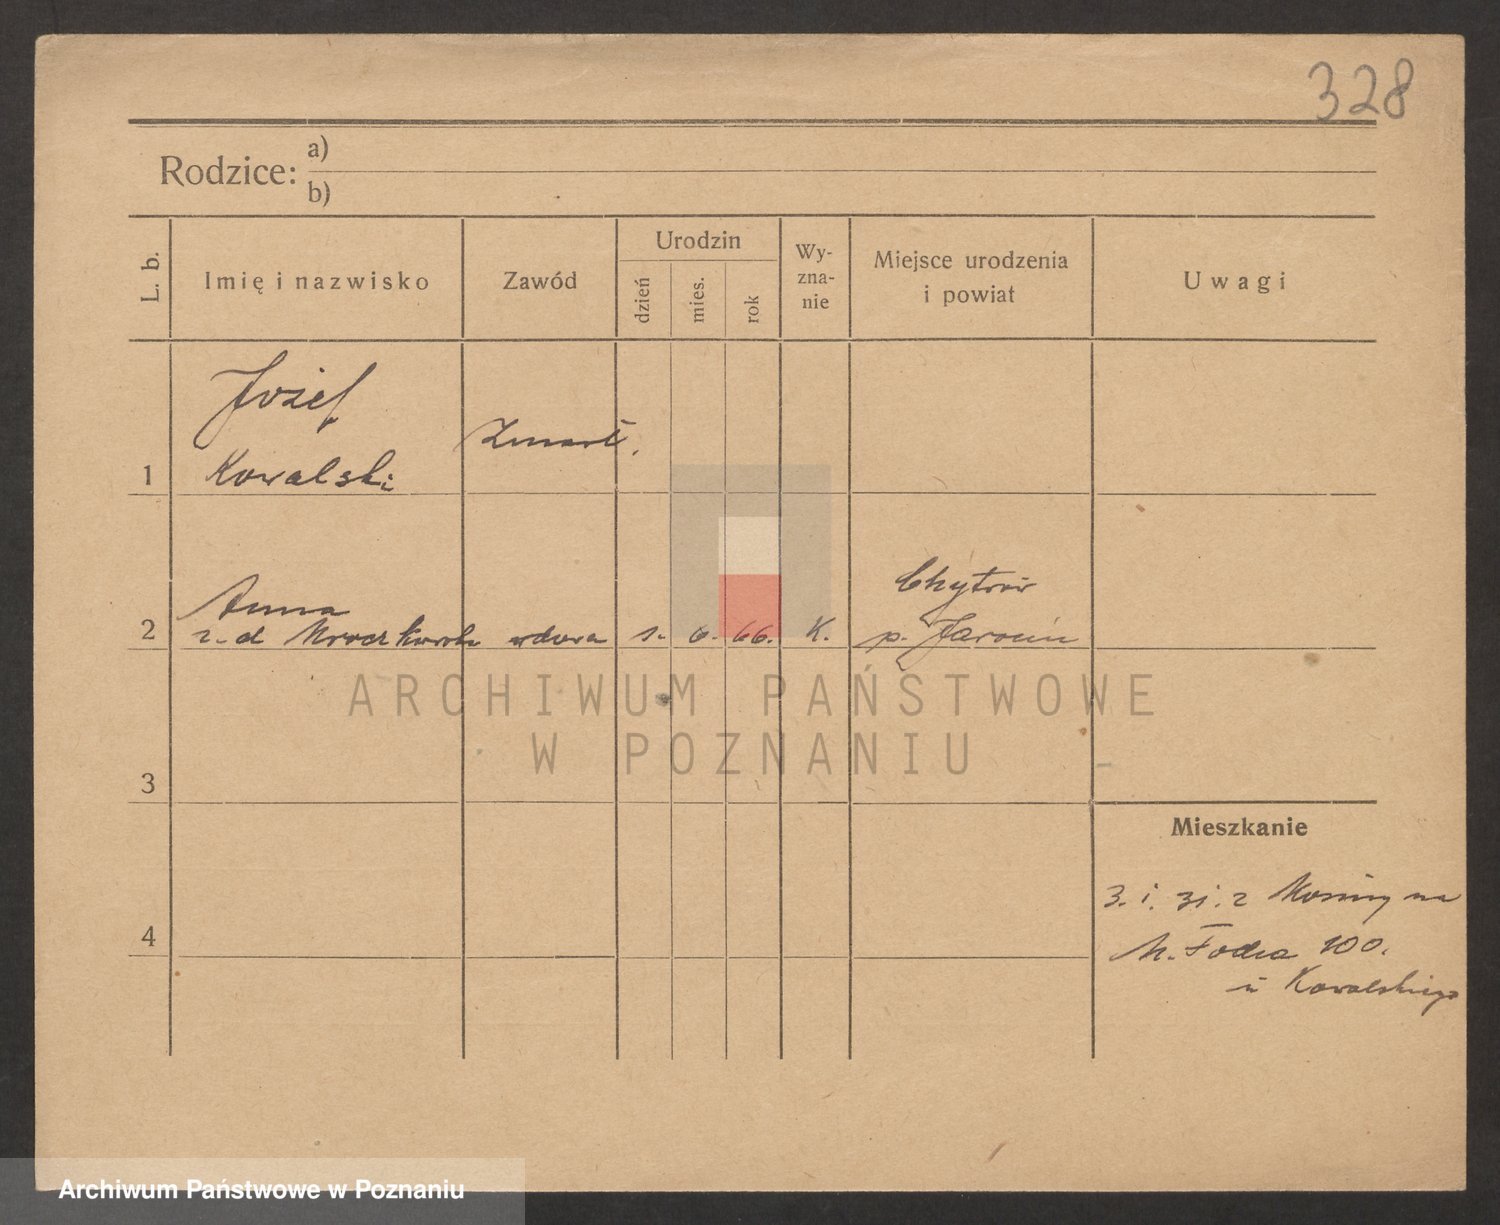 328
Rodzice: a)
b)
L. b.
Imię i nazwisko
Zawód
Urodzin
dzień
mies.
rok
Wy-
zna-
nie
Miejsce urodzenia
i powiat
Uwagi
1
Józef
Kowalski
Zmarł.
2
Anna
z-d
wdowa
1. 6. 66.
K.
Chytrów
p. Jarocin
3
4
Mieszkanie
3. 1. 31. z na
Focha 100.
u Kowalskiego
ARCHIWUM PAŃSTWOWE
W POZNANIU
Archiwum Państwowe w Poznaniu